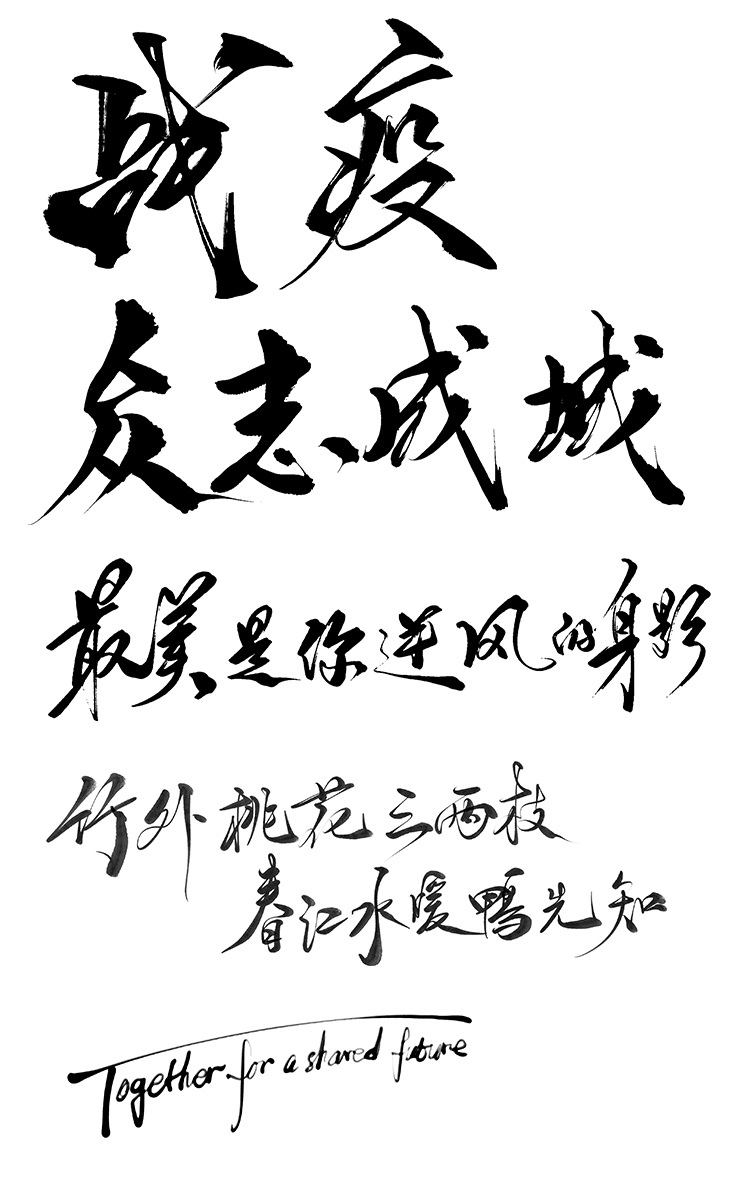 战疫
众志成城
最美是你逆风的身影
竹外桃花三两枝
春江水暖鸭先知
Together for a shared future